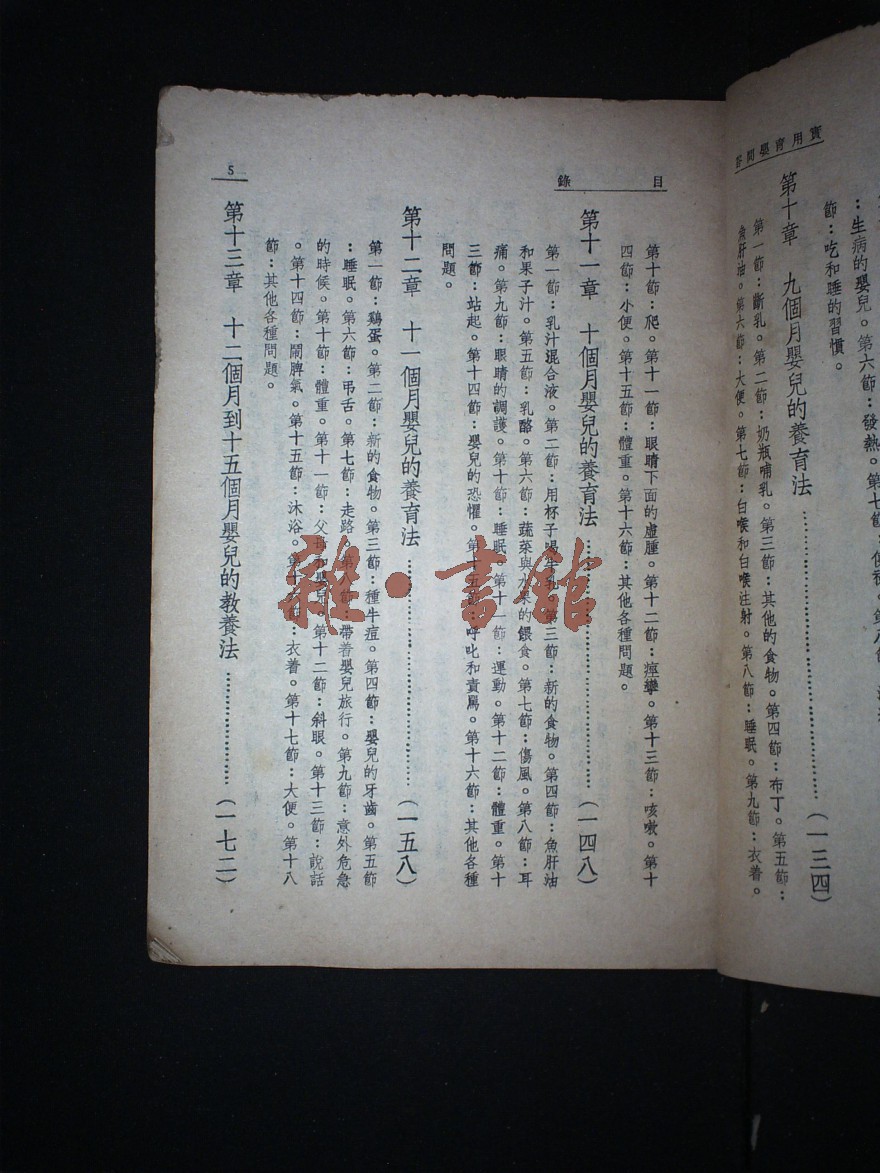 實用育嬰問答
節：吃和睡的習慣。
第十章　九個月嬰兒的養育法……………………（一三四）
第一節：斷乳。第二節：奶瓶哺乳。第三節：其他的食物。第四節：布丁。第五節：
魚肝油。第六節：大便。第七節：白喉和白喉注射。第八節：睡眠。第九節：衣着。
目錄
第十節：爬。第十一節：眼睛下面的虛腫。第十二節：痙攣。第十三節：咳嗽。第十
四節：小便。第十五節：體重。第十六節：其他各種問題。
第十一章　十個月嬰兒的養育法……………………（一四八）
第一節：乳汁混合液。第二節：用杯子喝牛乳。第三節：新的食物。第四節：魚肝油
和果子汁。第五節：乳酪。第六節：蔬菜與水果的餵食。第七節：傷風。第八節：耳
痛。第九節：眼睛的調護。第十節：睡眠。第十一節：運動。第十二節：體重。第十
三節：站起。第十四節：嬰兒的恐懼。第十五節：呼叱和責罵。第十六節：其他各種
問題。
第十二章　十一個月嬰兒的養育法……………………（一五八）
第一節：鷄蛋。第二節：新的食物。第三節：種牛痘。第四節：嬰兒的牙齒。第五節
：睡眠。第六節：弔舌。第七節：走路。第八節：帶着嬰兒旅行。第九節：意外危急
的時候。第十節：體重。第十一節：父母和嬰兒。第十二節：斜眼。第十三節：說話
。第十四節：鬧脾氣。第十五節：沐浴。第十六節：衣着。第十七節：大便。第十八
節：其他各種問題。
第十三章　十二個月到十五個月嬰兒的教養法……………………（一七二）
5
雜·書館